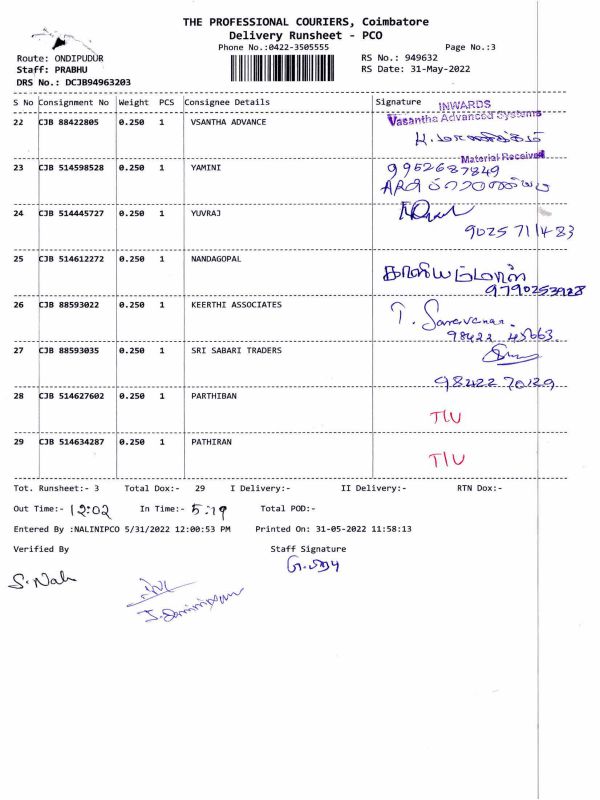 THE PROFESSIONAL COURIERS, Coimbatore
Delivery Runsheet - PCO
Phone No.:0422-3505555
Page No.:3
Route: ONDIPUDUR
RS No.: 949632
Staff: PRABHU
RS Date: 31-May-2022
DRS No.: DCJB94963203
S No Consignment No Weight PCS Consignee Details Signature
INWARDS
22 CJB 88422805 0.250 1 VSANTHA ADVANCE Vasantha Advanced Systems
Material Received
23 CJB 514598528 0.250 1 YAMINI 9952687849
24 CJB 514445727 0.250 1 YUVRAJ
9025 711483
25 CJB 514612272 0.250 1 NANDAGOPAL
9790253928
26 CJB 88593022 0.250 1 KEERTHI ASSOCIATES T. Saravanan.
98422 45663
27 CJB 88593035 0.250 1 SRI SABARI TRADERS
98422 70129
28 CJB 514627602 0.250 1 PARTHIBAN
TLU
29 CJB 514634287 0.250 1 PATHIRAN
TIU
Tot. Runsheet:- 3 Total Dox:- 29 I Delivery:- II Delivery:- RTN Dox:-
Out Time:- 12:02 In Time:- 5:19 Total POD:-
Entered By :NALINIPCO 5/31/2022 12:00:53 PM Printed On: 31-05-2022 11:58:13
Verified By Staff Signature